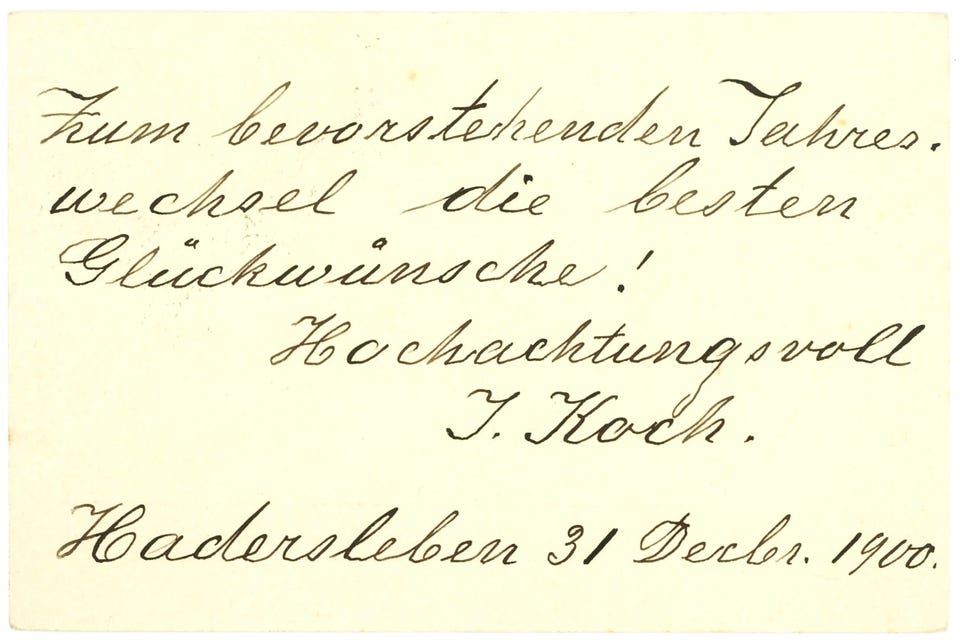 Zum bevorstehenden Jahres-
wechsel die besten
Glückwünsche!
Hochachtungsvoll
J. Koch.
Hadersleben 31 Decbr. 1900.